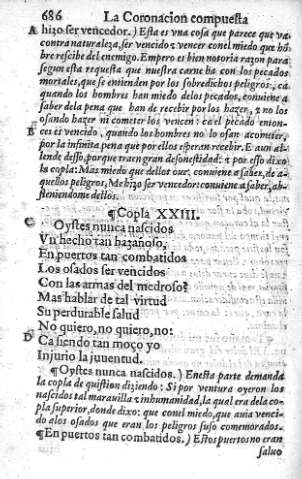 686 La Coronacion compuesta
A hizo ser vencedor.) Esta es vna cosa que parece que va
contra naturaleza, ser vencido z vencer con el miedo que hõ
bre rescibe del enemigo. Empero es bien notoria razon para
segun esta requesta que nuestra carne ha con los pecados
mortales, que se entienden por los sobredichos peligros; ca
quando los hombres han miedo delos pecados, conuiene a
saber dela pena que han de recebir por los hazer, z no los
osando hazer ni cometer los vencen: ca el pecado enton-
B ces es vencido, quando los hombres no lo osan acometer,
por la infinita pena que por ellos esperan recebir. E aun al-
lende desso, porque traen gran desonestidad: z por esso dixo
la copla: Mas miedo que dellos oue, conuiene a saber, de a-
quellos peligros, Me hizo ser vencedor: conuiene a saber, abs-
teniendome dellos.
¶Copla XXIII.
C Oystes nunca nascidos
Vn hecho tan hazañoso,
En puertos tan combatidos
Los osados ser vencidos
Con las armas del medroso?
Mas hablar de tal virtud
Su perdurable salud
No quiero, no quiero, no:
D Ca siendo tan moço yo
Injurio la juuentud.
¶Oystes nunca nascidos.) En esta parte demanda
la copla de quistion diziendo: Si por ventura oyeron los
nascidos tal marauilla z inhumanidad, la qual era dela co-
pla superior, donde dixo: que con el miedo, que auia venci-
do alos osados que eran los peligros suso comemorados.
¶En puertos tan combatidos.) Estos puertos no eran
saluo